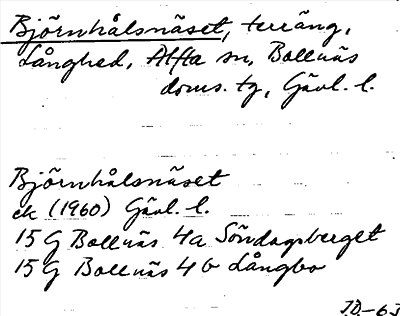 Björnhålsnäset, terräng,
Långhed, Alfta sn, Bollnäs
doms. tg, Gävl. l.
Björnhålsnäset
ek (1960) Gävl. l.
15 G Bollnäs 4a Söndagsberget
15 G Bollnäs 4b Långbo
JD-63